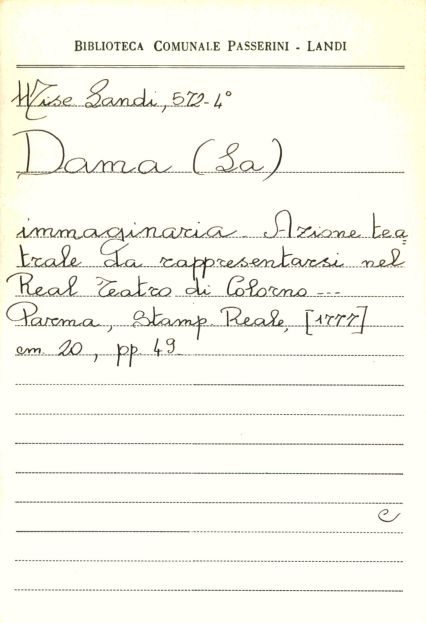 BIBLIOTECA COMUNALE PASSERINI - LANDI
Mise Landi, 572-4°
Dama (La)
immaginaria. Azione tea=
trale da rappresentarsi nel
Real Teatro di Colorno ---
Parma, Stamp. Reale, [1777]
cm 20, pp. 49
C